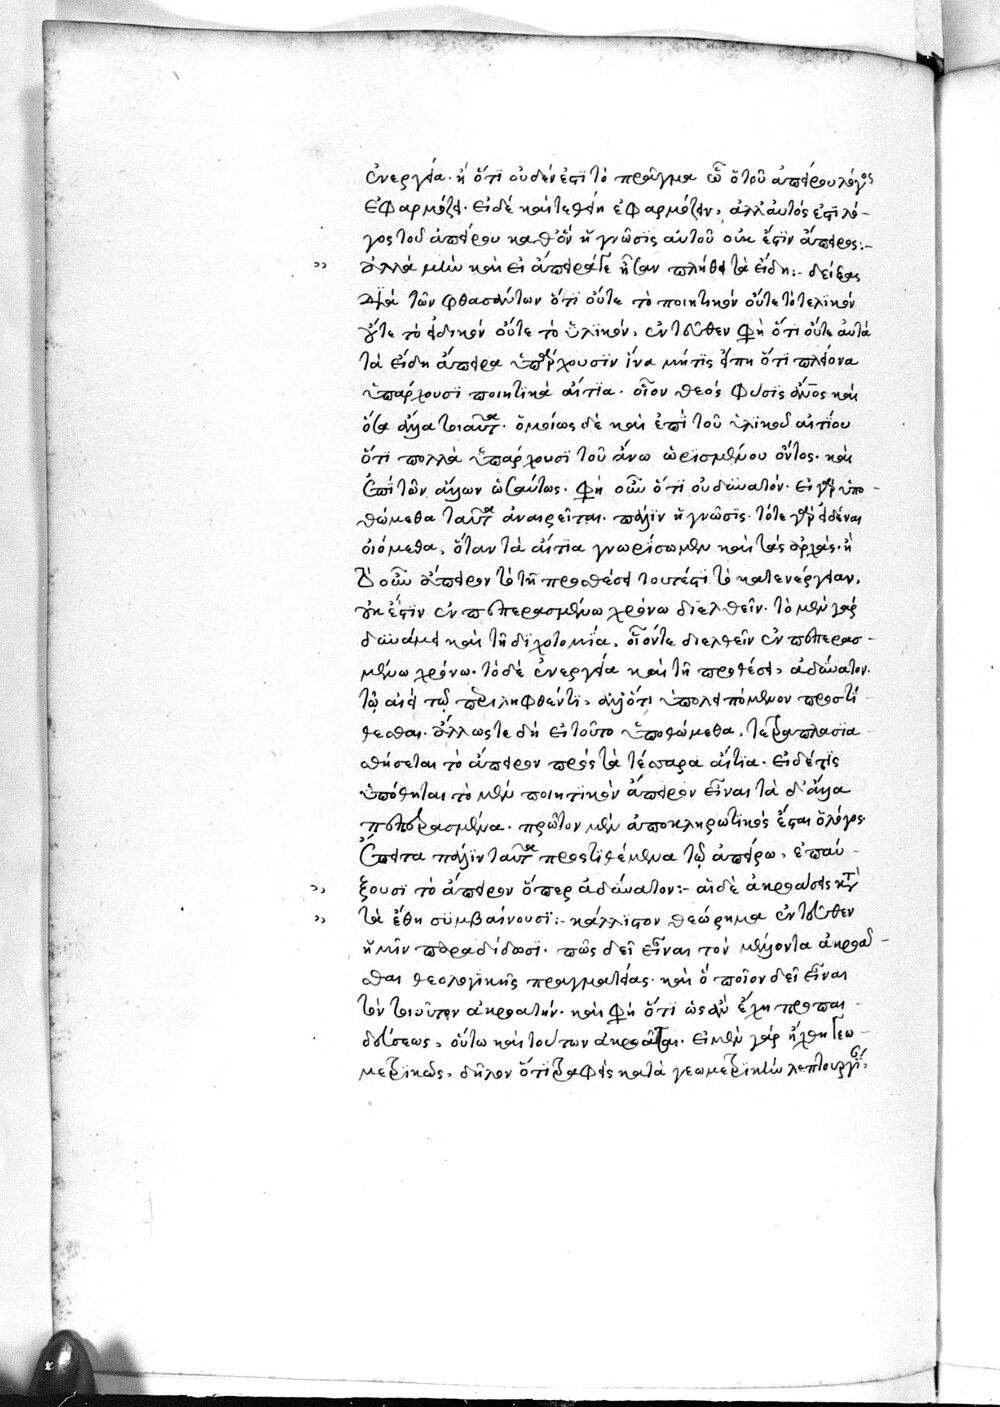 ἐνεργεία. ἢ ὅτι οὐδέν ἐστι τὸ πρᾶγμα ὧ ὁ τοῦ ἀπείρου λόγος
ἐφαρμόζει. εἰ δέ καὶ τεθείη ἐφαρμόζειν, ἀλλ' αὐτός ἐστι λό-
γος τοῦ ἀπείρου καθ' ὅν ἡ γνῶσις αὐτοῦ οὐκ ἔστιν ἄπειρος:-
ἀλλὰ μὴν καὶ εἰ ἄπειρά γε ἦσαν πλήθει τὰ εἴδη:- δείξας
διὰ τῶν φθασάντων ὅτι οὔτε τὸ ποιητικόν οὔτε τὸ τελικόν
οὔτε τὸ εἰδικόν οὔτε τὸ ὑλικόν, ἐντεῦθεν φησὶ ὅτι οὔτε αὐτὰ
τὰ εἴδη ἄπειρα ὑπάρχουσιν ἵνα μήτις εἴπη ὅτι πλείονα
ὑπάρχουσι ποιητικὰ αἴτια. οἷον θεός φύσις ἄνος καὶ
ὅσα ἄλλα τοιαῦτα. ὁμοίως δὲ καὶ ἐπὶ τοῦ ὑλικοῦ αἰτίου
ὅτι πολλὰ ὑπάρχουσι τοῦ ἄνω ὡρισμένου ὄντος. καὶ
ἐπὶ τῶν ἄλλων ὡσαύτως. φησὶ οὖν ὅτι οὐ δυνατόν. εἰ γὰρ ὑπο-
θώμεθα ταῦτα ἀναιρεῖται πάλιν ἡ γνῶσις. τότε γὰρ εἰδέναι
οἰόμεθα, ὅταν τὰ αἴτια γνωρίσωμεν καὶ τὰς ἀρχάς. ἢ
τὸ οὖν ἄπειρον τὸ τῇ προσθέσει τουτέστι τὸ κατενέργειαν,
οὐκ ἔστιν ἐν πεπερασμένω χρόνω διελθεῖν. τὸ μὲν γάρ
δυνάμει καὶ τῇ διχοτομία, οἷόντε διελθεῖν ἐν πεπερασ-
μένω χρόνω. τὸ δὲ ἐνεργεία καὶ τῇ προσθέσει, ἀδύνατον.
τῷ αἰεί τῷ περιληφθέντι, ἄλλό τι ὑπολειπόμενον προστί-
θεσθαι. ἄλλως τε δή εἰ τοῦτο ὑποθώμεθα, τετραπλασια-
σθήσεται τὸ ἄπειρον πρὸς τὰ τέσσαρα αἴτια. εἰ δέ τις
ὑπόθηται τὸ μὲν ποιητικόν ἄπειρον εἶναι τὰ δ' ἄλλα
πεπερασμένα. πρῶτον μὲν ἀποκληρωτικός ἔσται ὁ λόγος.
ἔπειτα πάλιν ταῦτα προστιθέμενα τῷ ἀπείρω, ἐπαύ-
ξουσι τὸ ἄπειρον ὅπερ ἀδύνατον:- αἱ δὲ ἀκροάσεις κατὰ
τὰ ἔθη συμβαίνουσι:- κάλλιστον θεώρημα ἐντεῦθεν
ἡμῖν παραδίδωσι. πῶς δεῖ εἶναι τόν μέλλοντα ἀκροᾶ-
σθαι θεολογικῆς πραγματείας. καὶ ὁ ποῖον δεῖ εἶναι
τὸν τοιοῦτον ἀκροατήν. καὶ φησὶ ὅτι ὡς ἂν ἔχη προπαι-
δεύσεως, οὕτω καὶ τούτων ἀκροᾶται. εἰ μὲν γάρ ἤχθη γεω-
μετρικῶς, δῆλον ὅτι τραφεὶς κατὰ γεωμετρικὴν λεπτουργί-